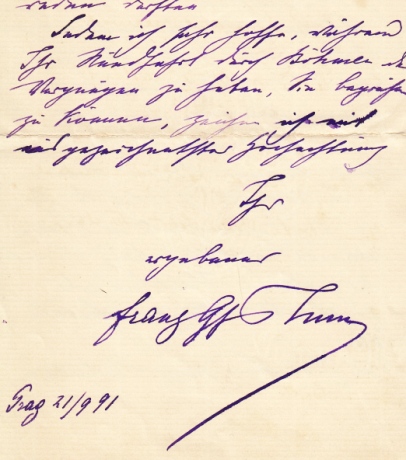 reden dürften
Indem ich sehr hoffe, während
Ihr Rundfahrt durch Böhmen das
Vergnügen zu haben, Sie begrüßen
zu können, zeichne ich mit
ausgezeichnetster Hochachtung
Ihr
ergebener
Franz Gf Thun
Prag 21/9 91